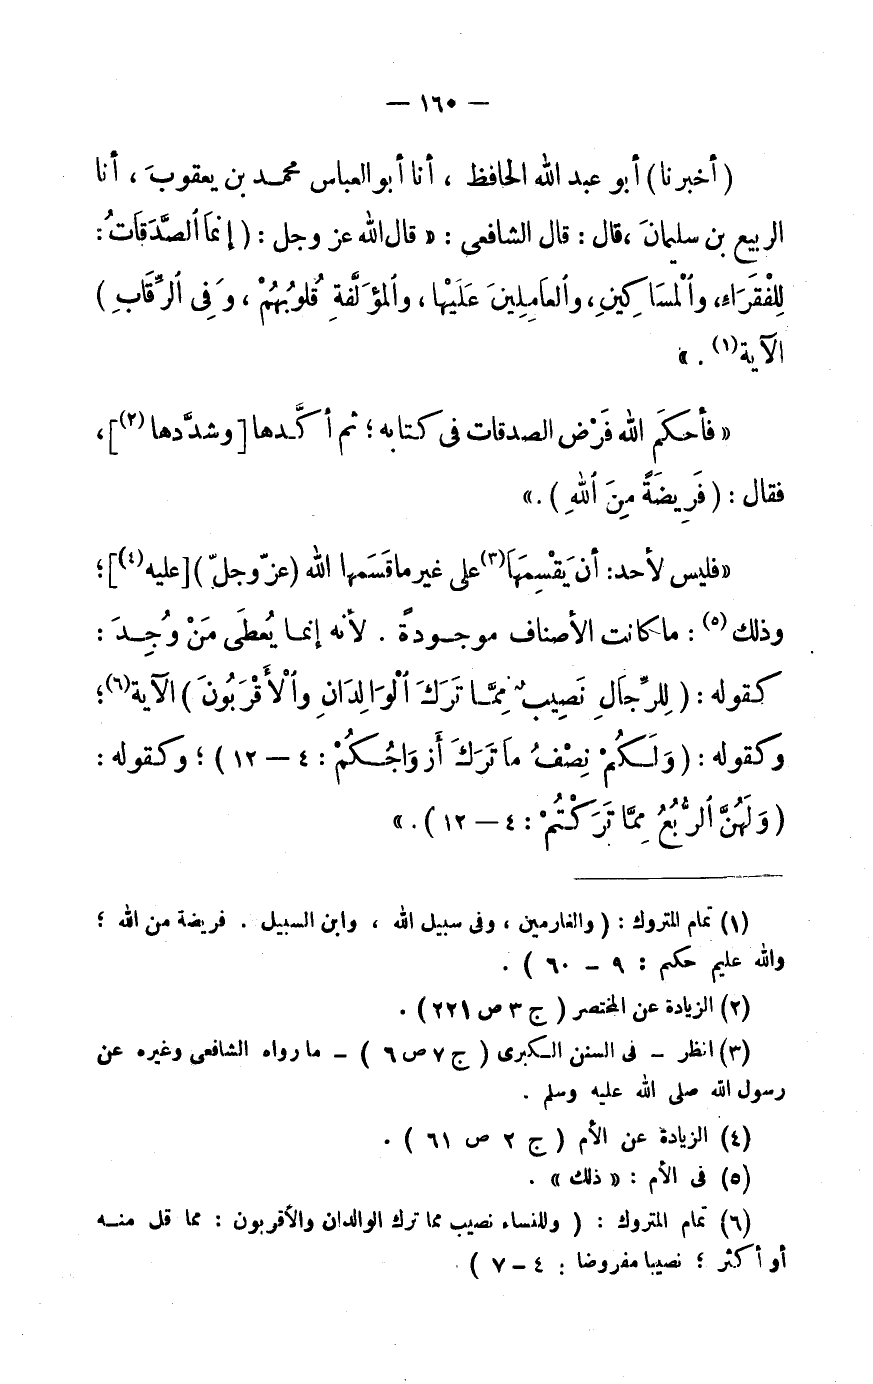 — ١٦٠ —
(أخبرنا) أبو عبد الله الحافظ ، أنا أبو العباس محمد بن يعقوبَ ، أنا
الربيع بن سليمانَ ،قال : قال الشافعى : « قال الله عز وجل : (إِنَّمَا ٱلصَّدَقَاتُ :
لِلْفُقَرَاءِ، وَٱلْمَسَاكِينِ، وَٱلعَامِلِينَ عَلَيْهَا ، وَٱلمُؤَلَّفَةِ قُلُوبُهُمْ ، وَفِى ٱلرِّقَابِ )
الآية(١) . »
« فأحكَم الله فَرْض الصدقات فى كتابه ؛ ثم أكَّدها [وشدَّدها (٢)] ،
فقال : ( فَرِيضَةً مِنَ ٱللهِ ) .»
«فليس لأحد : أن يَقْسِمَهَا(٣)على غير ماقَسَمها الله (عزّ وجلّ )[عليه(٤)] ؛
وذلك (٥) : ما كانت الأصناف موجودةً . لأنه إنما يُعطَى مَنْ وُجِدَ :
كقوله : ( لِلرِّجَالِ نَصِيبٌ مِمَّا تَرَكَ ٱلْوَالِدَانِ وَٱلْأَقْرَبُونَ ) الآية(٦)؛
وكقوله : ( وَلَكُمْ نِصْفُ مَا تَرَكَ أَزوَاجُكُمْ : ٤ — ١٢ ) ؛ وكقوله :
( وَلَهُنَّ ٱلرُّبُعُ مِمَّا تَرَكْتُمْ : ٤ — ١٢ ) . »
(١) تمام المتروك : ( والغارمين ، وفى سبيل الله ، وابن السبيل . فريضة من الله ؛
والله عليم حكيم : ٩ – ٦٠ ) .
(٢) الزيادة عن المختصر ( ج ٣ ص ٢٢١ ) .
(٣) انظر – فى السنن الكبرى ( ج ٧ ص ٦ ) – ما رواه الشافعى وغيره عن
رسول الله صلى الله عليه وسلم .
(٤) الزيادة عن الأم ( ج ٢ ص ٦١ ) .
(٥) فى الأم : « ذلك » .
(٦) تمام المتروك : ( وللنساء نصيب مما ترك الوالدان والأقربون : مما قل منه
أو أكثر ؛ نصيبا مفروضا : ٤ – ٧ ) .